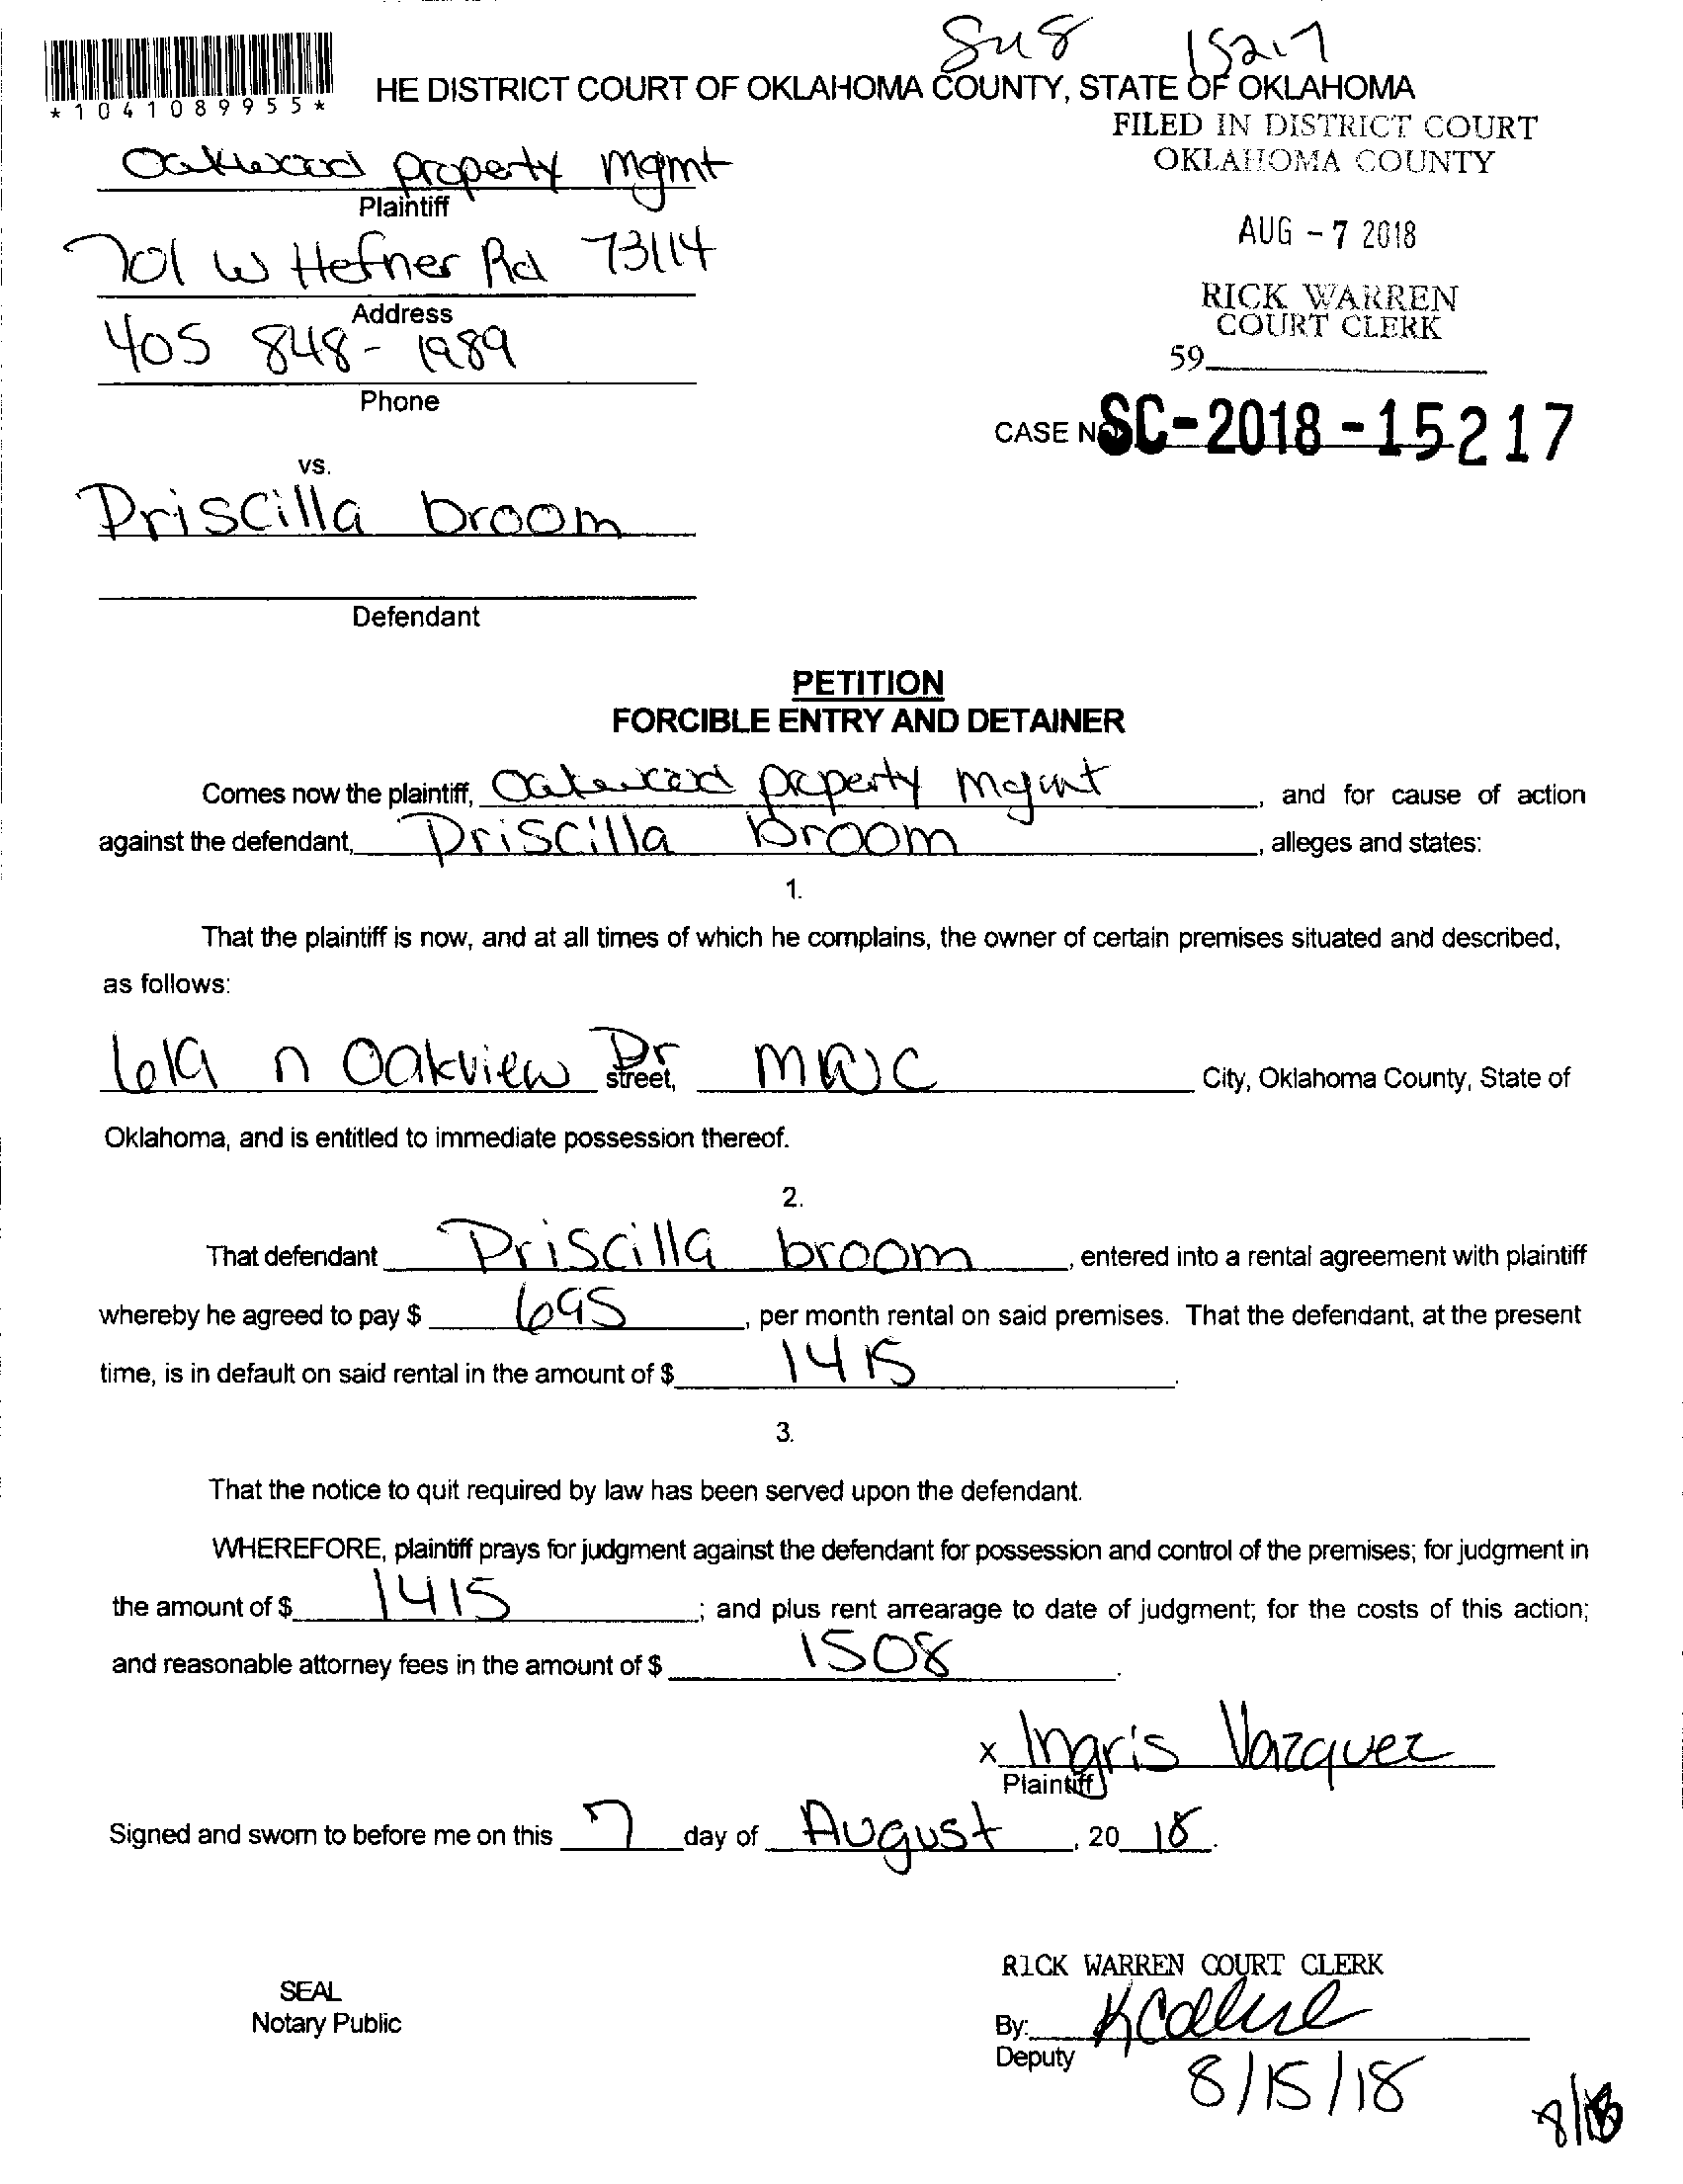 Su8 15217
*1041089955*
HE DISTRICT COURT OF OKLAHOMA COUNTY, STATE OF OKLAHOMA
FILED IN DISTRICT COURT
OKLAHOMA COUNTY
Oakwood property mgmt
Plaintiff
AUG - 7 2018
701 W Hefner Rd 73114
Address
RICK WARREN
COURT CLERK
405 848-1989
59
Phone
CASE NO SC-2018-15217
vs.
Priscilla broom
Defendant
PETITION
FORCIBLE ENTRY AND DETAINER
Comes now the plaintiff, Oakwood property mgmt, and for cause of action
against the defendant, Priscilla broom, alleges and states:
1.
That the plaintiff is now, and at all times of which he complains, the owner of certain premises situated and described,
as follows:
619 n Oakview Dr street, MWC City, Oklahoma County, State of
Oklahoma, and is entitled to immediate possession thereof.
2.
That defendant Priscilla broom, entered into a rental agreement with plaintiff
whereby he agreed to pay $ 695, per month rental on said premises. That the defendant, at the present
time, is in default on said rental in the amount of $ 1415.
3.
That the notice to quit required by law has been served upon the defendant.
WHEREFORE, plaintiff prays for judgment against the defendant for possession and control of the premises; for judgment in
the amount of $ 1415; and plus rent arrearage to date of judgment; for the costs of this action;
and reasonable attorney fees in the amount of $ 1508.
x Ingris Vazquez
Plaintiff
Signed and sworn to before me on this 7 day of August, 20 18.
RICK WARREN COURT CLERK
SEAL
Notary Public
By:
Deputy
8/15/18